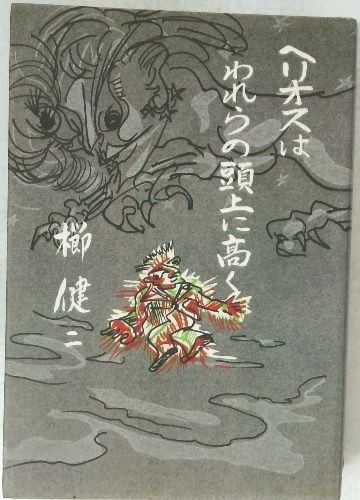 ヘリオスは
われらの頭上に高く
櫛健二